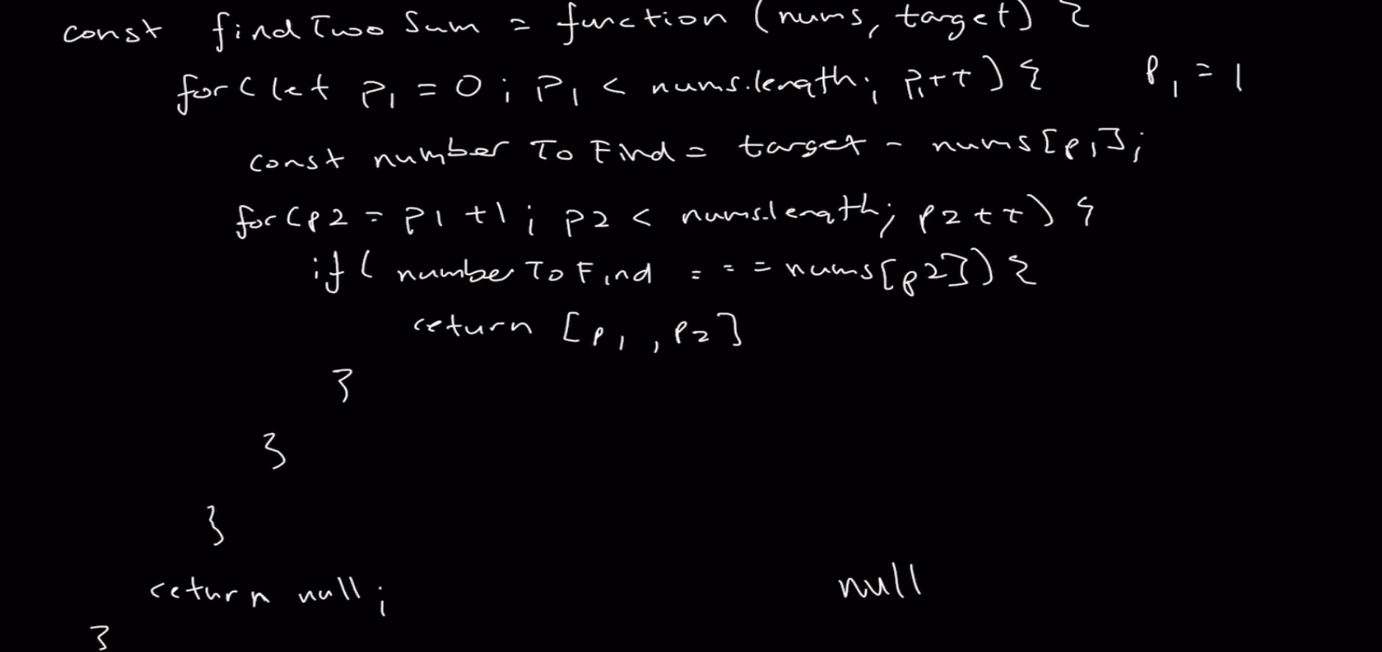 const findTwoSum = function (nums, target) {
for(let P1 = 0; P1 < nums.length; P1++) { P1 = 1
const numberToFind = target - nums[P1];
for(p2 = p1 +1; p2 < nums.length; p2++) {
if( numberToFind === nums[p2]) {
return [p1, p2]
}
}
}
return null; null
}